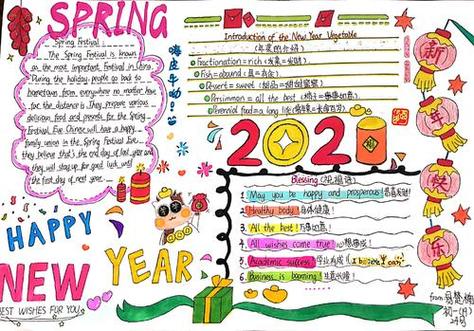 SPRING
Spring Festival
The Spring Festival is known
as the most important Festival in China.
During the holiday, people go back to
hometown from everywhere no matter how
far the distance is. They prepare various
delicious food and presents for the Spring
Festival. Eve Chinese will have a happy
family union in the Spring Festival Eve.
they believe that's the end day of last year and
they will stay up for good luck, and
the first day of next year.
HAPPY
NEW
YEAR
BEST WISHES FOR YOU
Introduction of the New Year Vegetable
(年菜的介绍)
Fractionation = rich (发菜=发财)
Fish = abound (鱼=有余)
Dessert = sweet (甜品=甜甜蜜蜜)
Persimmon = all the best
Perennial food = a long life
2021
Blessing (祝福语)
1. May you be happy and prosperous! 恭喜发财!
2. Healthy body! 身体健康!
3. All the best! 万事如意!
4. All wishes come true! 心想事成!
5. Academic success 学业有成
6. Business is booming! 生意兴隆!
新
年
快
乐
from:
初一
24号